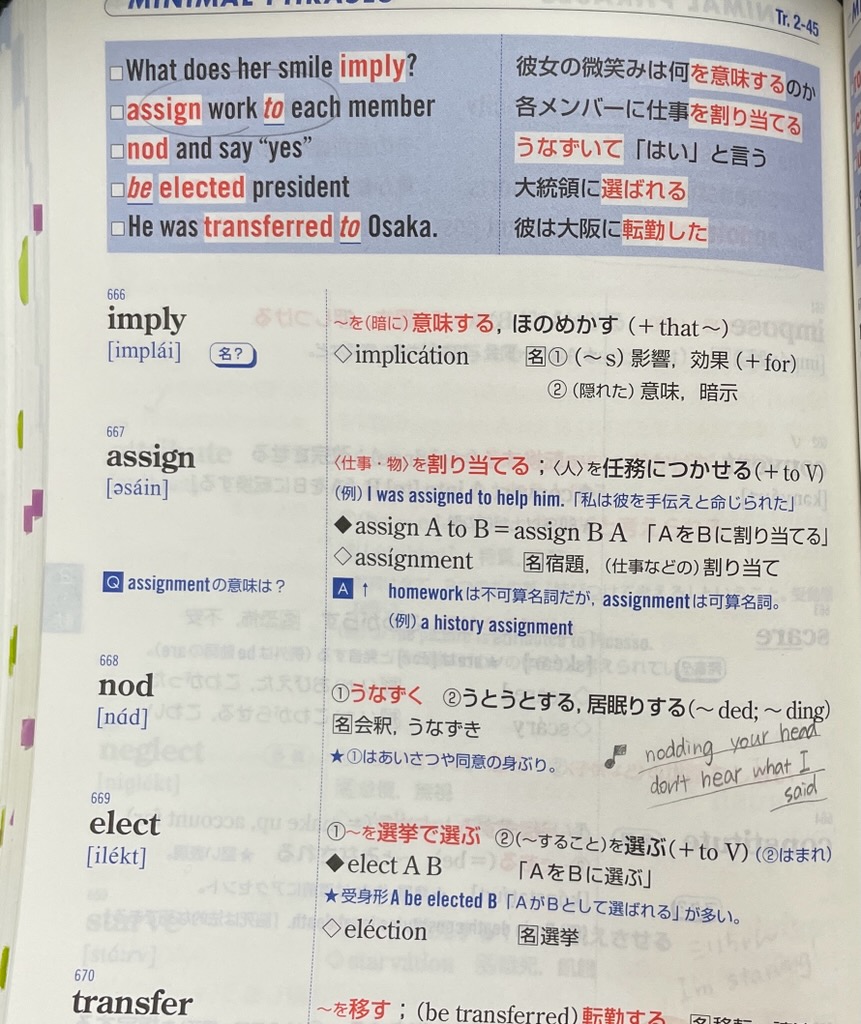 MINIMAL PHRASES
Tr. 2-45
□What does her smile imply? 彼女の微笑みは何を意味するのか
□assign work to each member 各メンバーに仕事を割り当てる
□nod and say “yes” うなずいて「はい」と言う
□be elected president 大統領に選ばれる
□He was transferred to Osaka. 彼は大阪に転勤した
666
imply ～を(暗に)意味する，ほのめかす（＋that～）
[implái] 名? ◇implicátion 名①（～s）影響，効果（＋for）
②（隠れた）意味，暗示
667
assign 〈仕事・物〉を割り当てる；〈人〉を任務につかせる（＋to V）
[əsáin] （例）I was assigned to help him.「私は彼を手伝えと命じられた」
◆assign A to B＝assign B A 「AをBに割り当てる」
◇assígnment 名宿題，（仕事などの）割り当て
Q assignmentの意味は？ A ↑ homeworkは不可算名詞だが，assignmentは可算名詞。
（例）a history assignment
668
nod ①うなずく ②うとうとする，居眠りする（～ded; ～ding）
[nád] 名会釈，うなずき
★①はあいさつや同意の身ぶり。
nodding your head
don't hear what I
said
669
elect ①～を選挙で選ぶ ②（～すること）を選ぶ（＋to V）（②はまれ）
[ilékt] ◆elect A B 「AをBに選ぶ」
★受身形A be elected B「AがBとして選ばれる」が多い。
◇eléction 名選挙
670
transfer ～を移す；（be transferred）転勤する